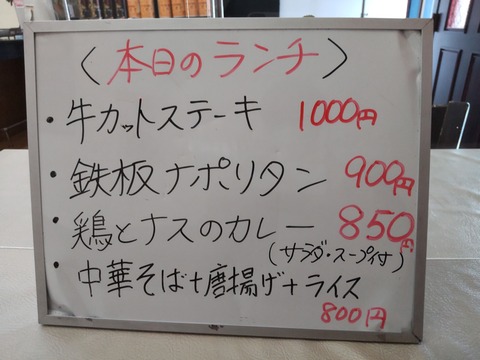 〈本日のランチ〉
・牛カットステーキ 1000円
・鉄板ナポリタン 900円
・鶏とナスのカレー 850円
(サラダ・スープ付)
・中華そば+唐揚げ+ライス
800円